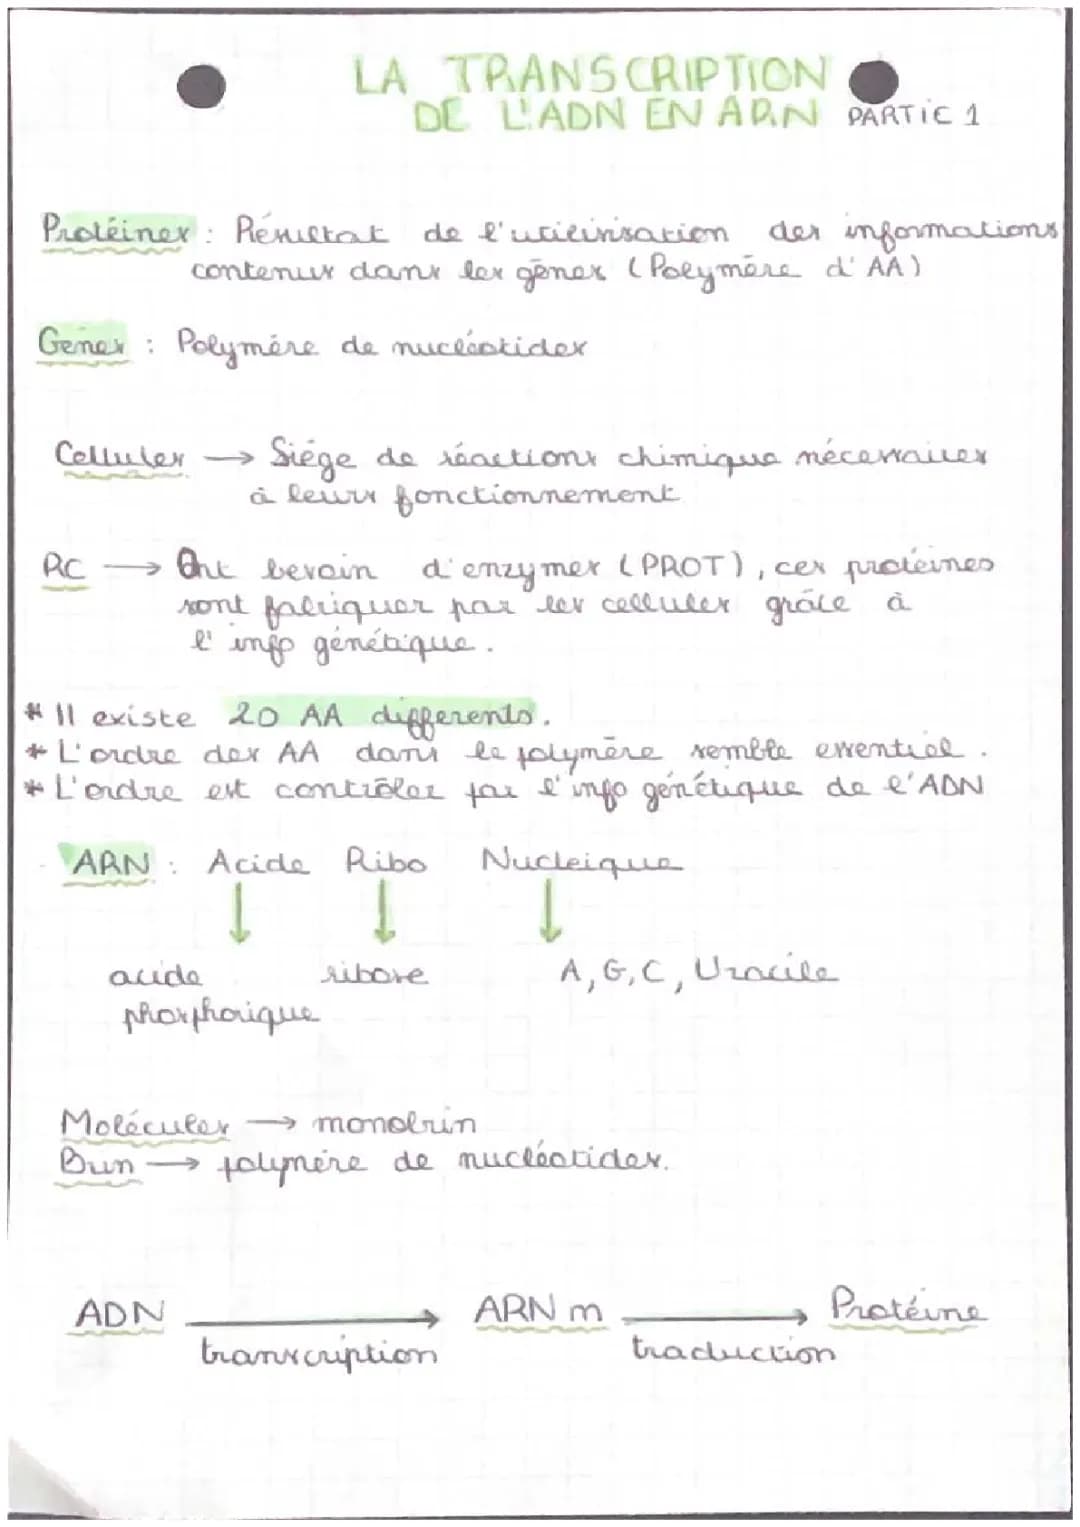 LA TRANSCRIPTION
DE L'ADN EN ARN PARTIE 1
Protéines : Résultat de l'utilinisation des informations
contenus dans les gènes (Polymère d'AA)
Genes : Polymère de nucléotides
Cellules → Siége de réactions chimique nécessaires
à leurs fonctionnement
RC → Ont besoin d'enzymes (PROT), ces protéines
sont fabriquer par les cellules grâce à
l'info génétique.
* Il existe 20 AA differents.
* L'ordre des AA dans le polymère semble essentiel.
* L'ordre est contrôler par l'info génétique de l'ADN
ARN : Acide Ribo Nucleique
↓ ↓ ↓
acide ribose A, G, C, Uracile
phosphorique
Molécules → monobrin
Brin → polymère de nucléotides.
ADN → ARN m → Protéine
transcription traduction